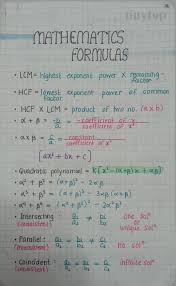 MATHEMATICS
FORMULAS
• LCM = highest exponent power × remaining factor
• HCF = lowest exponent power of common factor
• HCF × LCM = product of two no. (a×b)
• α + β = -b/a = -coefficient of x / coefficient of x²
• α × β = c/a = constant / coefficient of x²
[ax² + bx + c]
• Quadratic polynomial = K[x² - (α+β)x + αβ]
• α² + β² = (α+β)² - 2αβ
• α³ + β³ = (α+β)³ - 3αβ (α+β)
• Intersecting (consistent) a₁/a₂ ≠ b₁/b₂ one solⁿ or unique solⁿ
• Parallel : (inconsistent) a₁/a₂ = b₁/b₂ ≠ c₁/c₂ no solⁿ
• Coincident : (consistent) a₁/a₂ = b₁/b₂ = c₁/c₂ infinite solⁿ